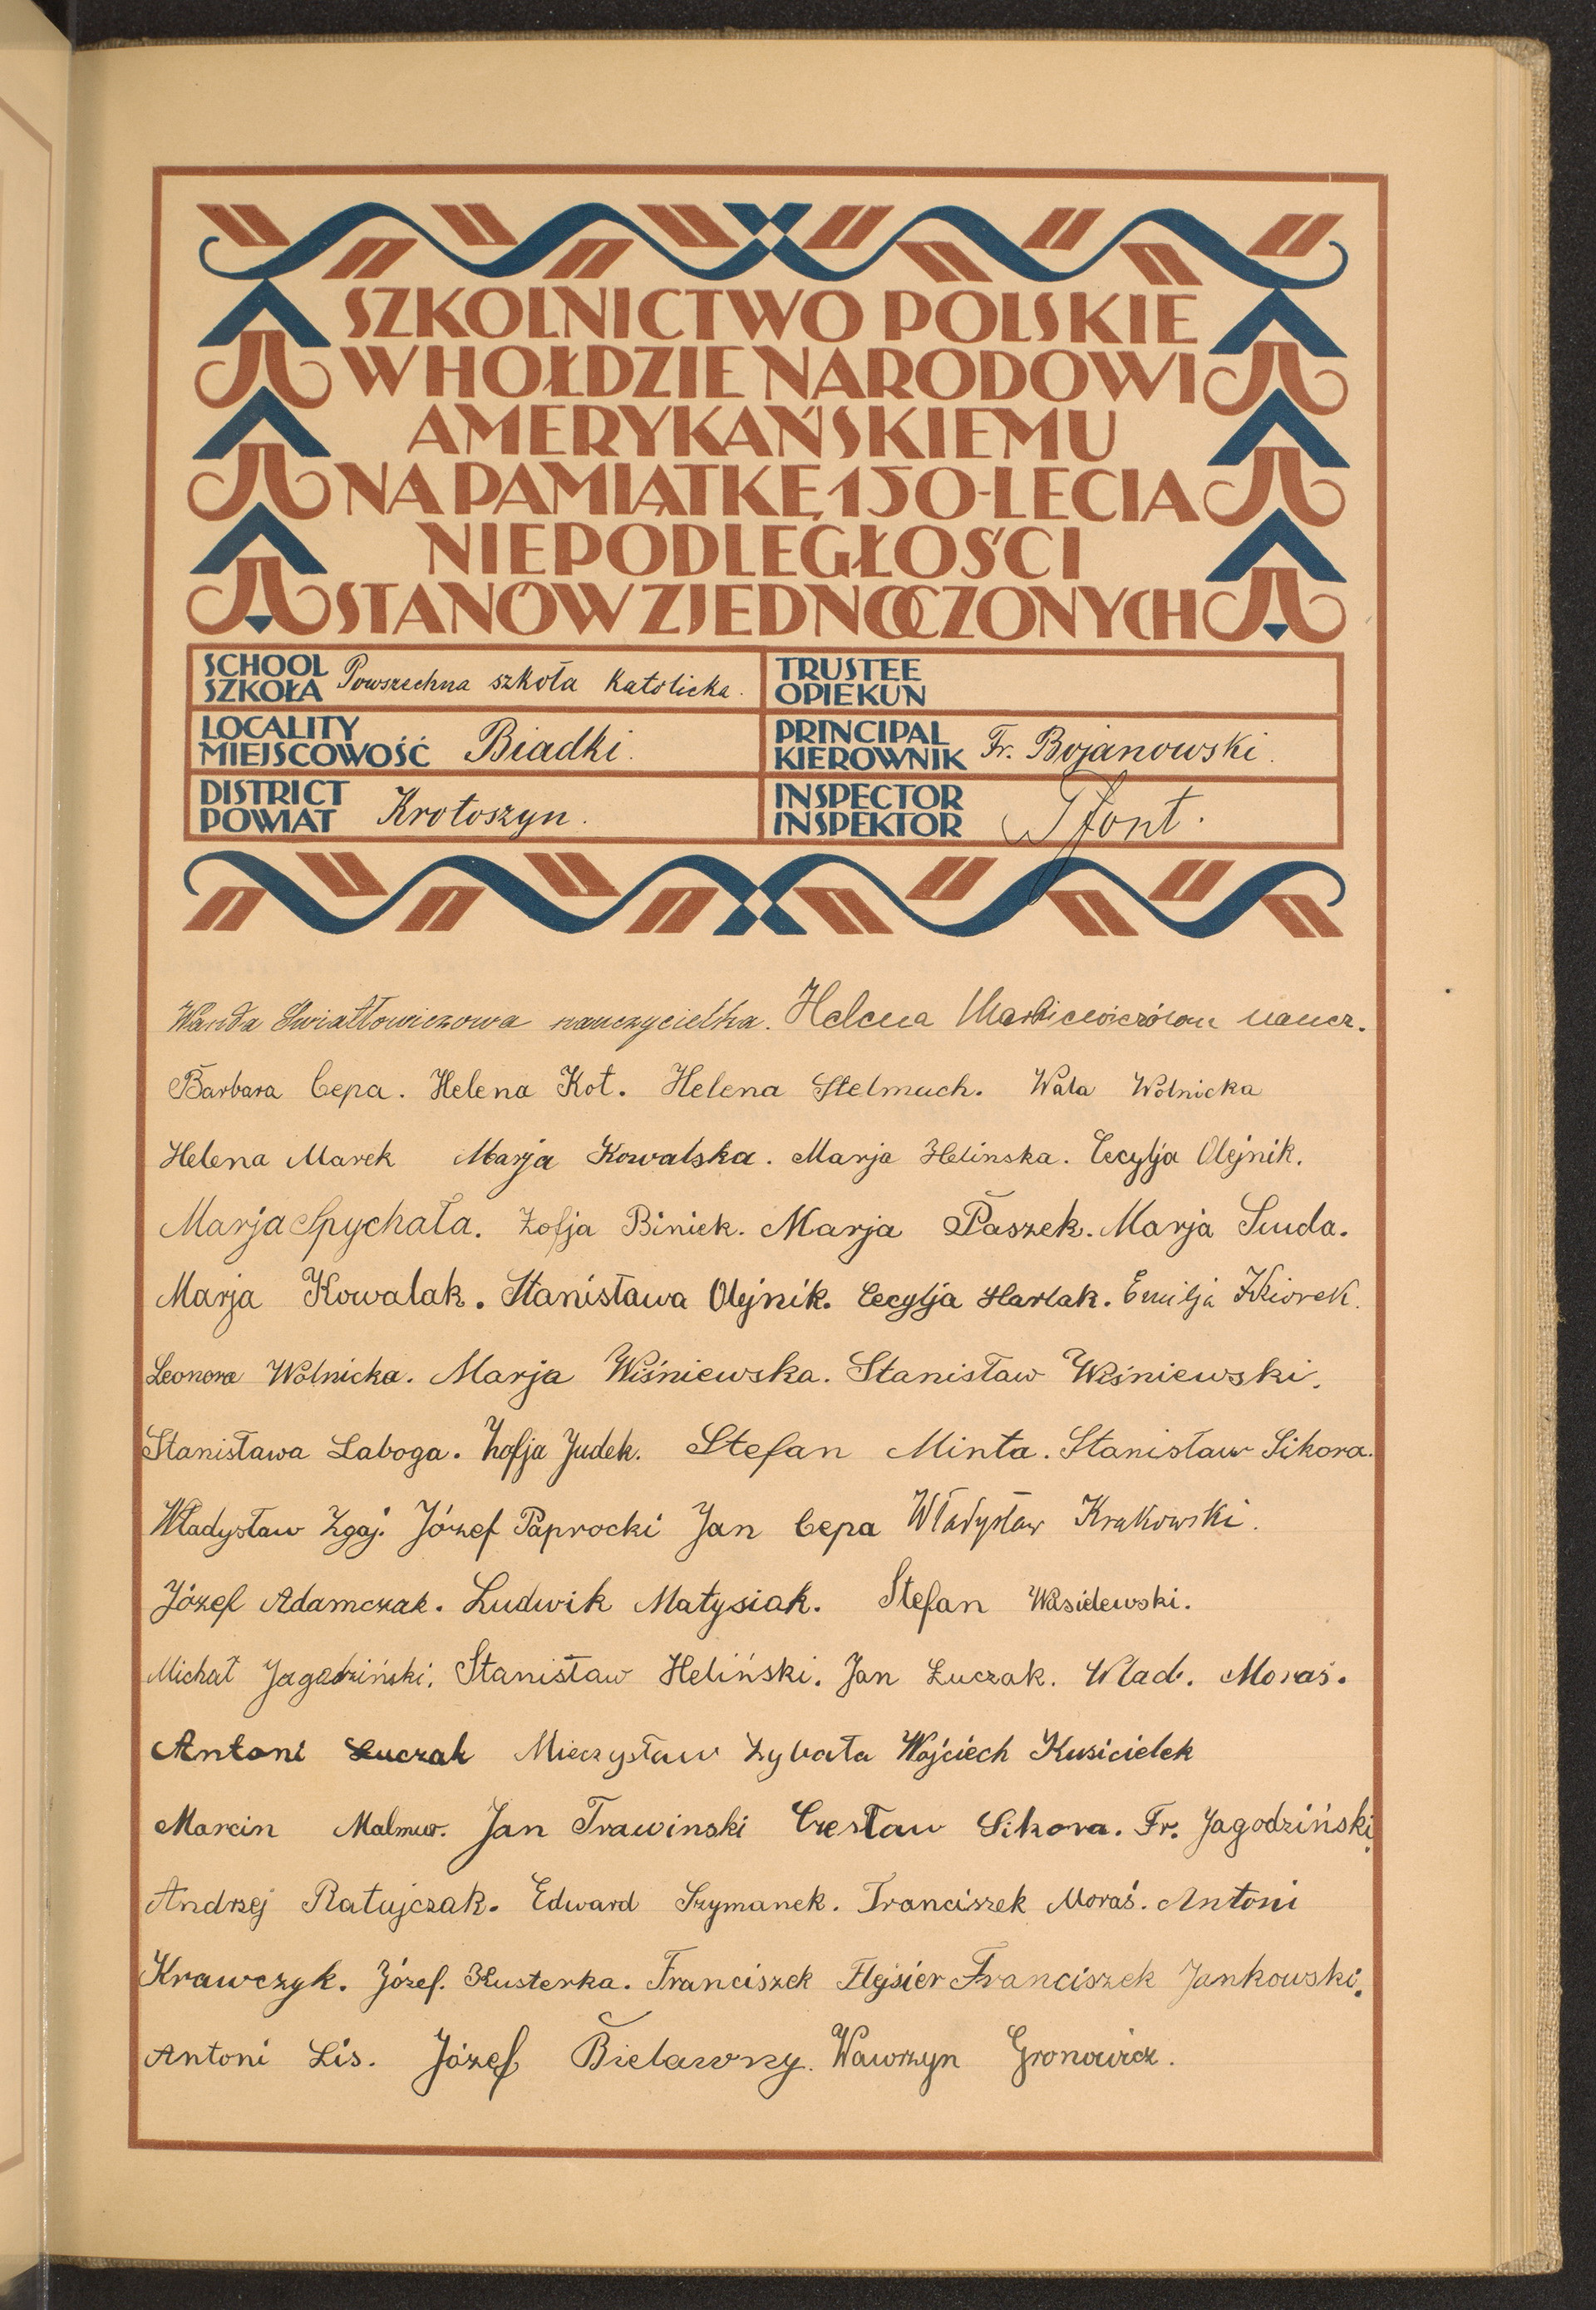 SZKOLNICTWO POLSKIE
W HOŁDZIE NARODOWI
AMERYKAŃSKIEMU
NA PAMIĄTKĘ 150-LECIA
NIEPODLEGŁOŚCI
STANÓW ZJEDNOCZONYCH
SCHOOL
SZKOŁA Powszechna szkoła katolicka.
TRUSTEE
OPIEKUN
LOCALITY
MIEJSCOWOŚĆ Biadki.
PRINCIPAL
KIEROWNIK Fr. Bojanowski.
DISTRICT
POWIAT Krotoszyn.
INSPECTOR
INSPEKTOR
Wanda Światłowiczowa nauczycielka. Helena naucz.
Barbara Cepa. Helena Kot. Helena Stelmach. Wala Wolnicka
Helena Marek Marja Kowalska. Marja Helinska. Cecylja Olejnik.
Marja Spychała. Zofja Biniek. Marja Paszek. Marja Suda.
Marja Kowalak. Stanisława Olejnik. Cecylja Harlak. Emilja
Leonora Wolnicka. Marja Wiśniewska. Stanisław Wiśniewski.
Stanisława Laboga. Zofja Judek. Stefan Minta. Stanisław Sikora.
Władysław Zgaj. Józef Paprocki Jan Cepa Władysław Krakowski.
Józef Adamczak. Ludwik Matysiak. Stefan Wasielewski.
Michał Jagodziński. Stanisław Heliński. Jan Łuczak. Wład. Moraś.
Antoni Łuczak Mieczysław Zybała Wojciech Kusicielek
Marcin Jan Trawinski Czesław Sikora. Fr. Jagodziński.
Andrzej Ratajczak. Edward Szymanek. Franciszek Moraś. Antoni
Krawczyk. Józef. Kusterka. Franciszek Flejsier Franciszek Jankowski.
Antoni Lis. Józef Bielawny. Wawrzyn Gronowicz.